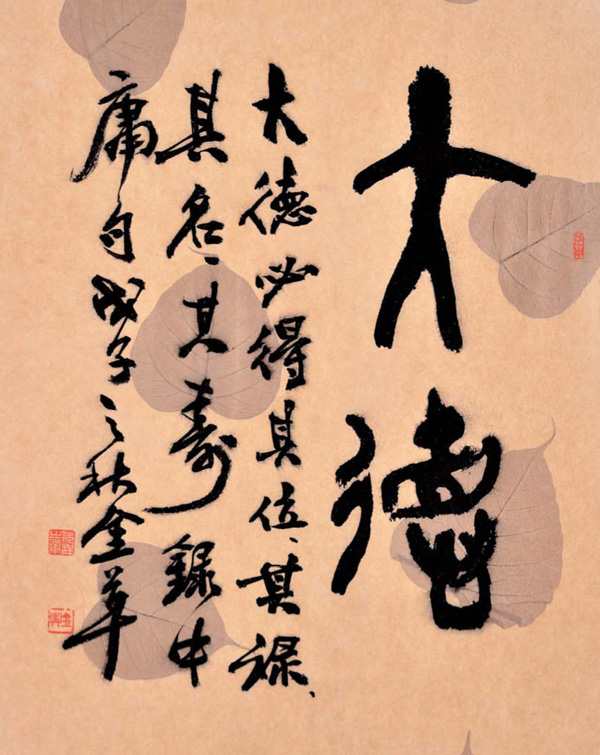 大德
大德必得其位、其禄、
其名、其寿録中
庸句戊子之秋金草